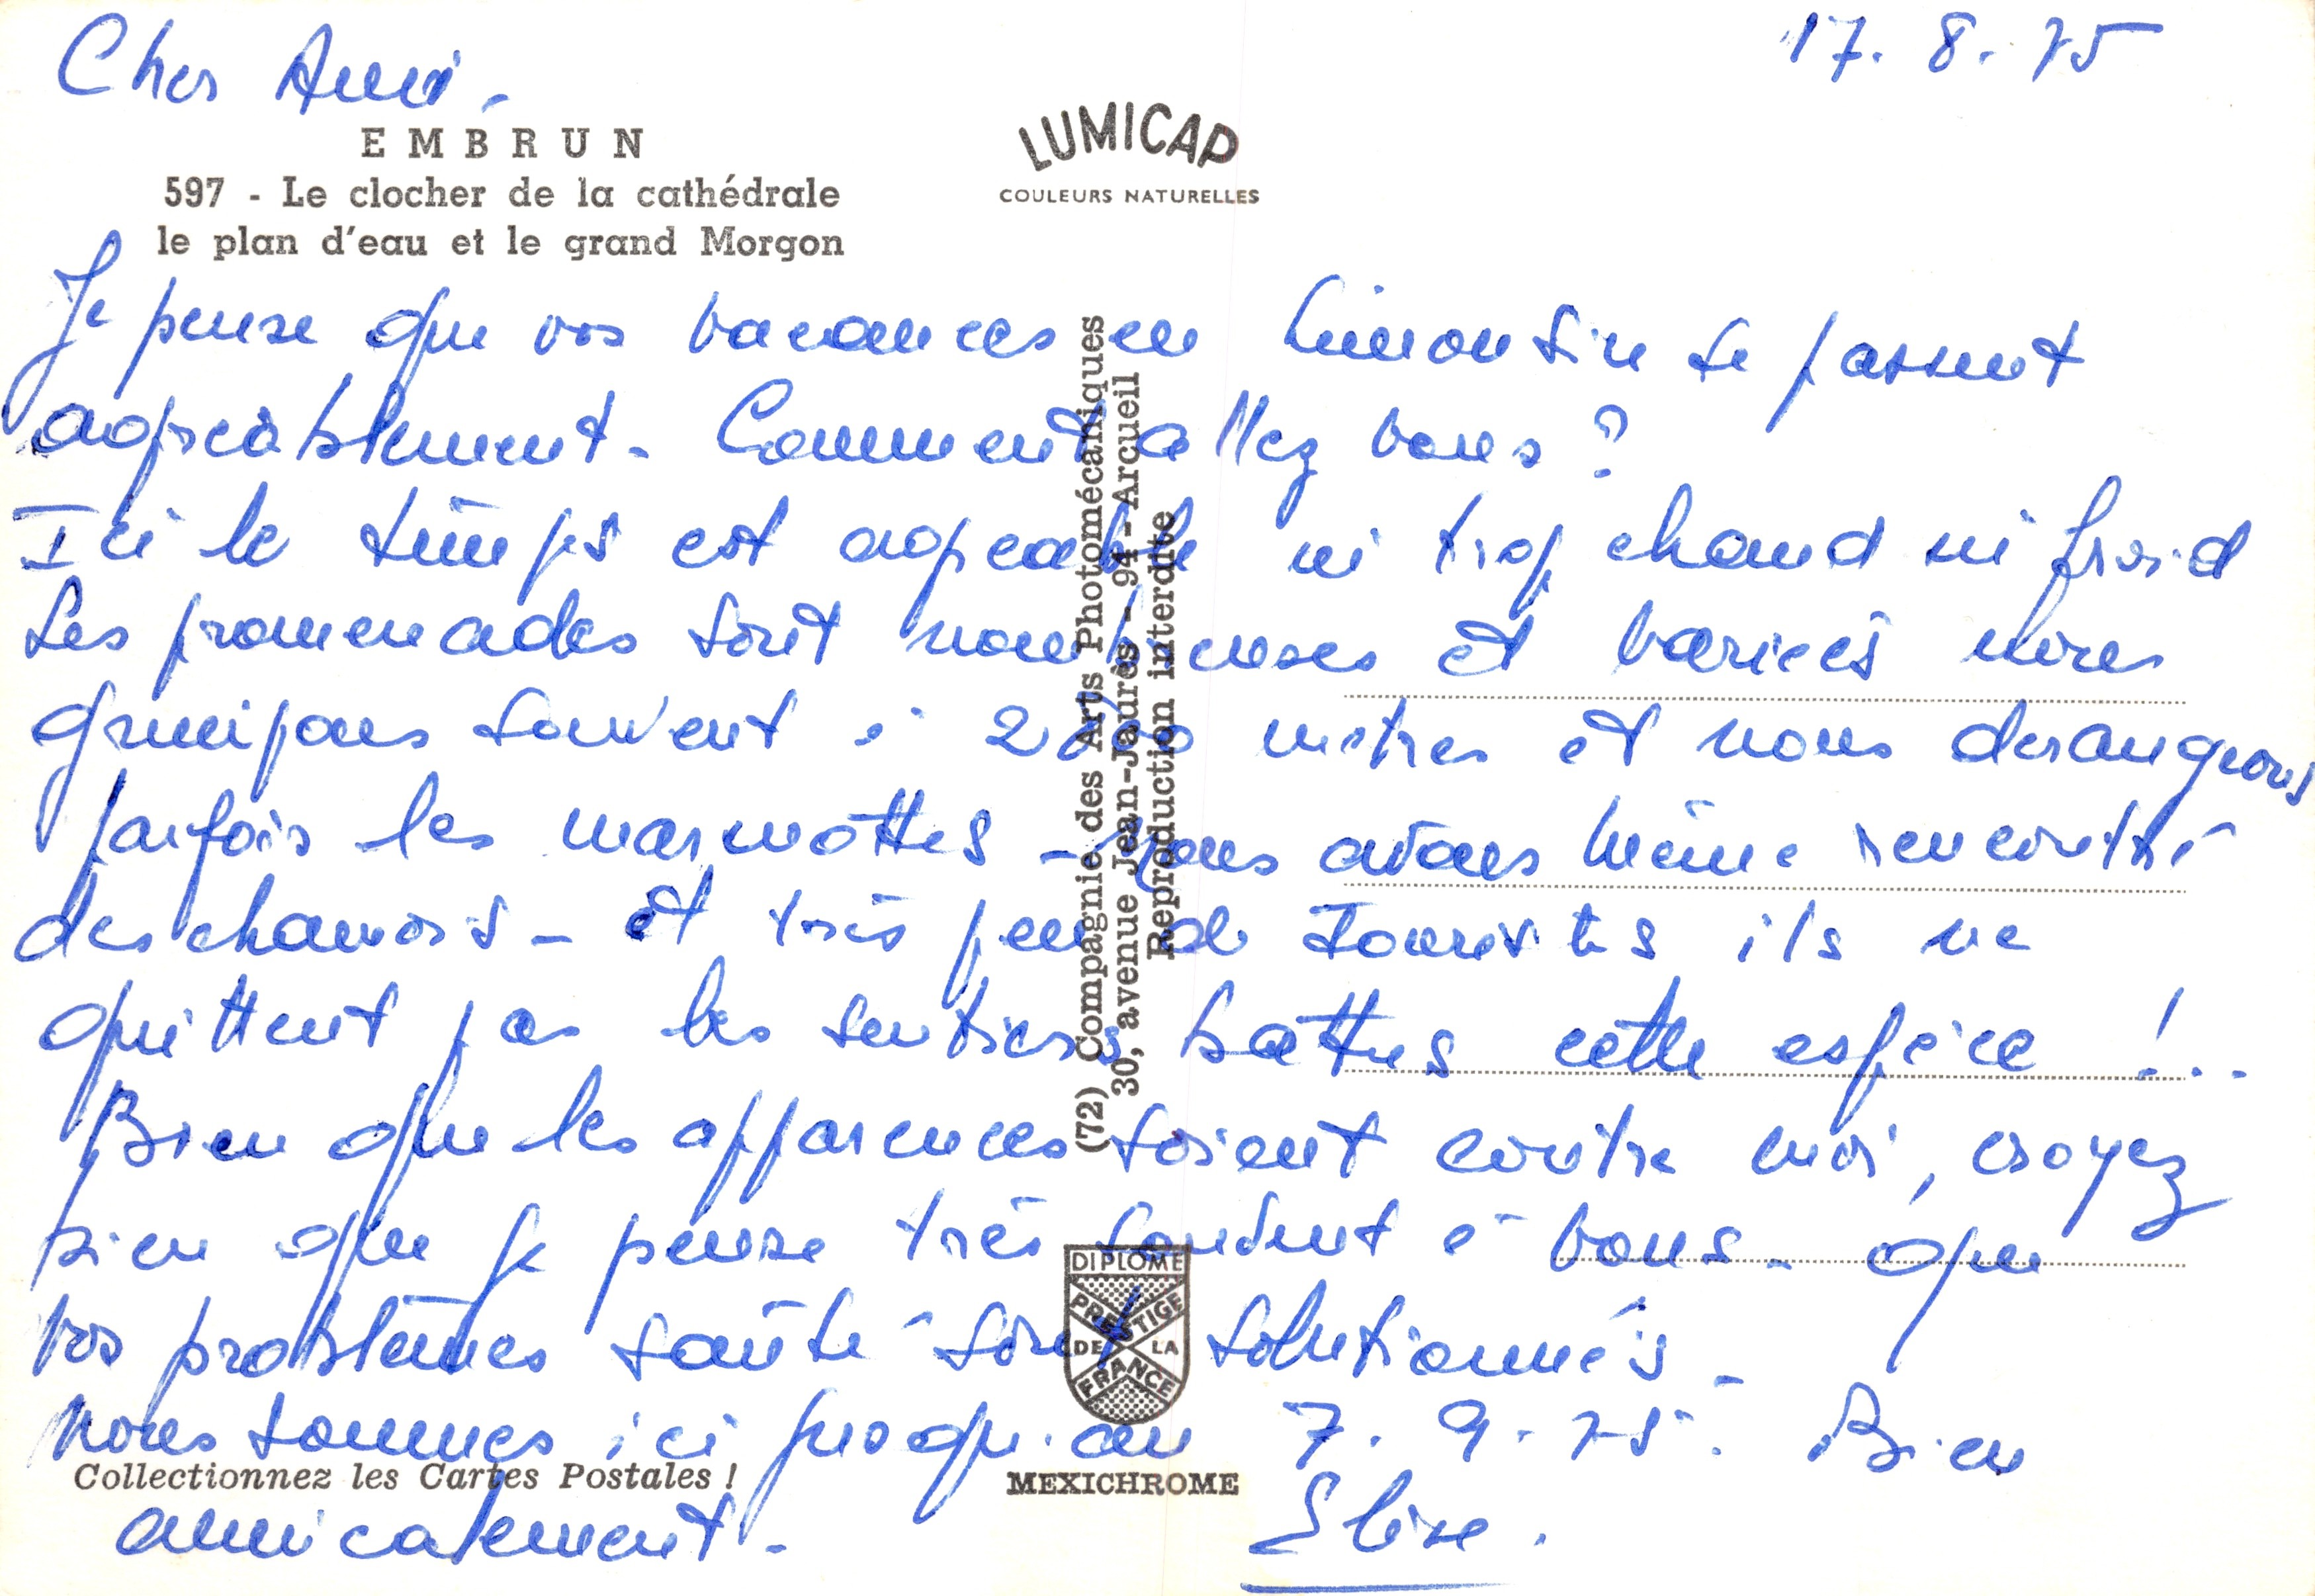 17. 8. 75
Cher Ami.
EMBRUN
597 - Le clocher de la cathédrale
le plan d'eau et le grand Morgon
LUMICAP
COULEURS NATURELLES
Je pense que vos vacances en Limousin se passent
agréablement. Comment allez vous ?
Ici le temps est agréable ni trop chaud ni froid
Les promenades sont nombreuses et variées nous
grimpons souvent à 2000 mètres et nous dérangeons
parfois les marmottes - nous avons même rencontré
des chamois - et très peu de Touristes ils ne
quittent pas les sentiers battus cette espèce !..
Bien que les apparences soient contre moi, croyez
bien que je pense très souvent à vous - que
vos problèmes santé sont solutionnés -
Nous sommes ici jusqu'au 7. 9. 75. Bien
amicalement.
Elise.
(72) Compagnie des Arts Photomécaniques
30, avenue Jean-Jaurès - 94 - Arcueil
Reproduction interdite
DIPLOME
PRESTIGE
DE LA
FRANCE
Collectionnez les Cartes Postales !
MEXICHROME